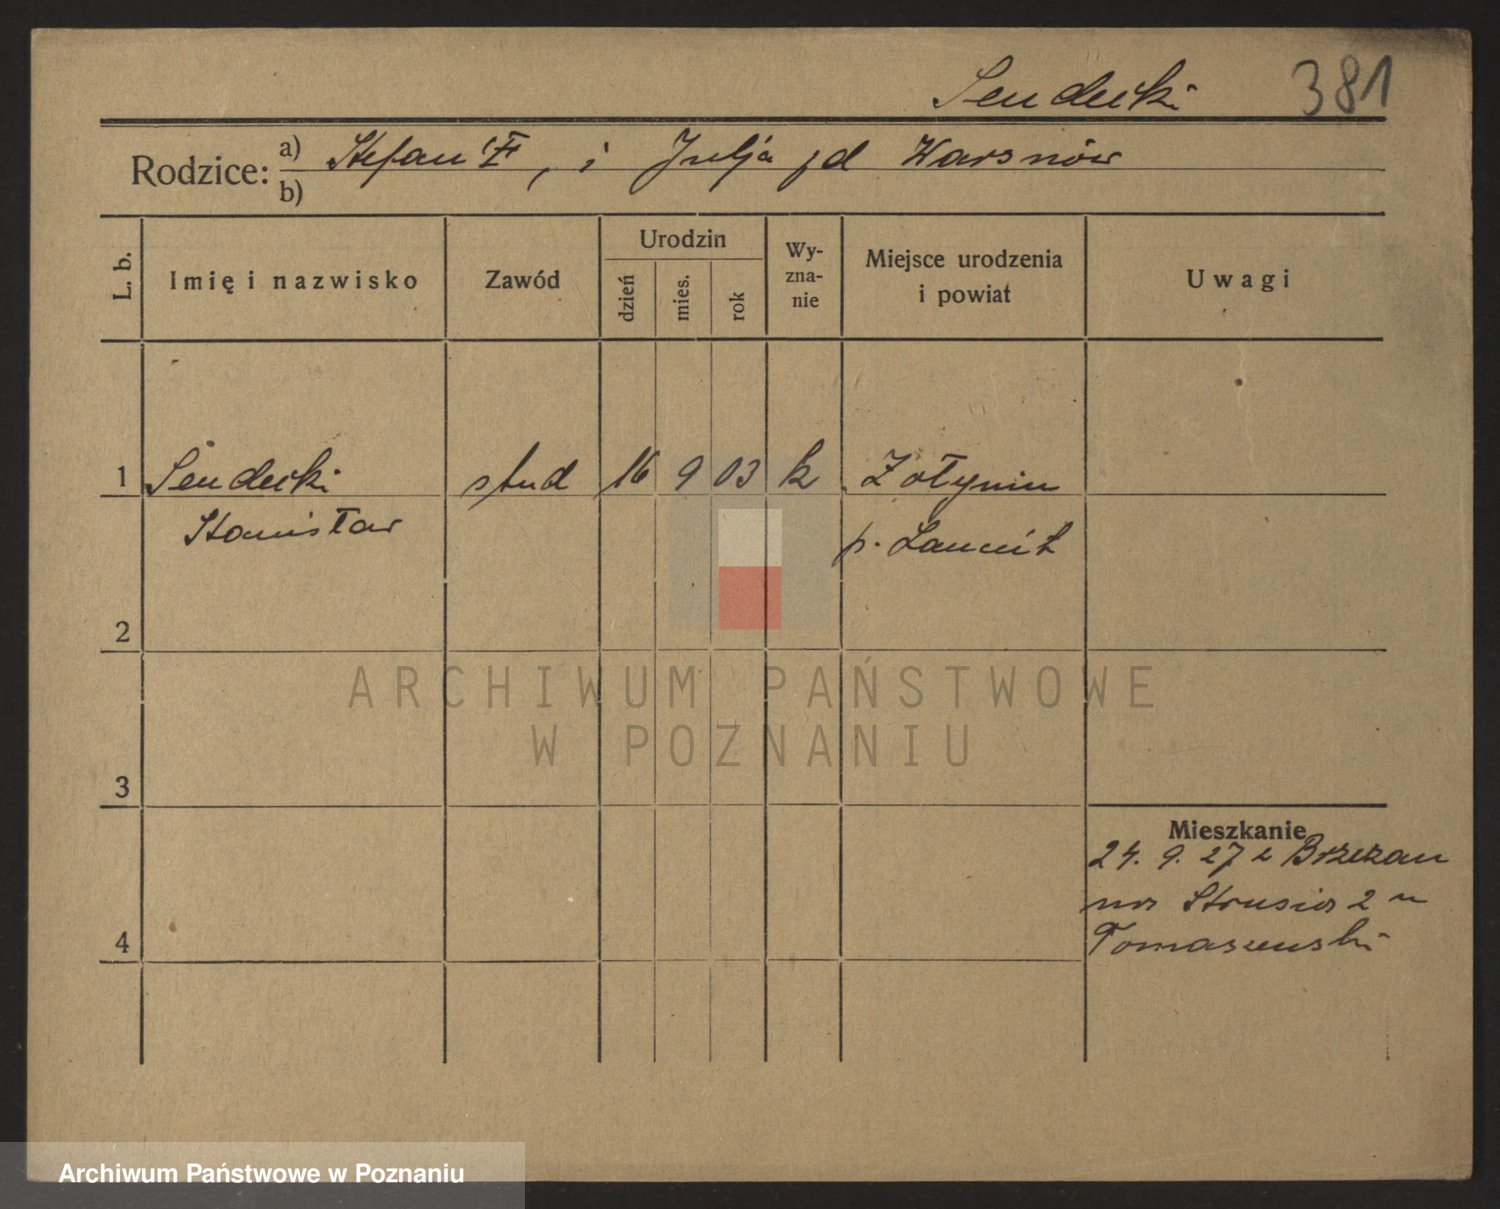 Sendecki 381
Rodzice: a) Stefan , i Julja
b)
L. b.
Imię i nazwisko
Zawód
Urodzin
dzień
mies.
rok
Wy-
zna-
nie
Miejsce urodzenia
i powiat
Uwagi
1 Sendecki stud 16 9 03 k Żołynia
Stanisław p. Łańcut
2
ARCHIWUM PAŃSTWOWE
W POZNANIU
3
Mieszkanie
24. 9. 27 z Brzeżan
na Strusia 2 u
4 Tomaszewski
Archiwum Państwowe w Poznaniu